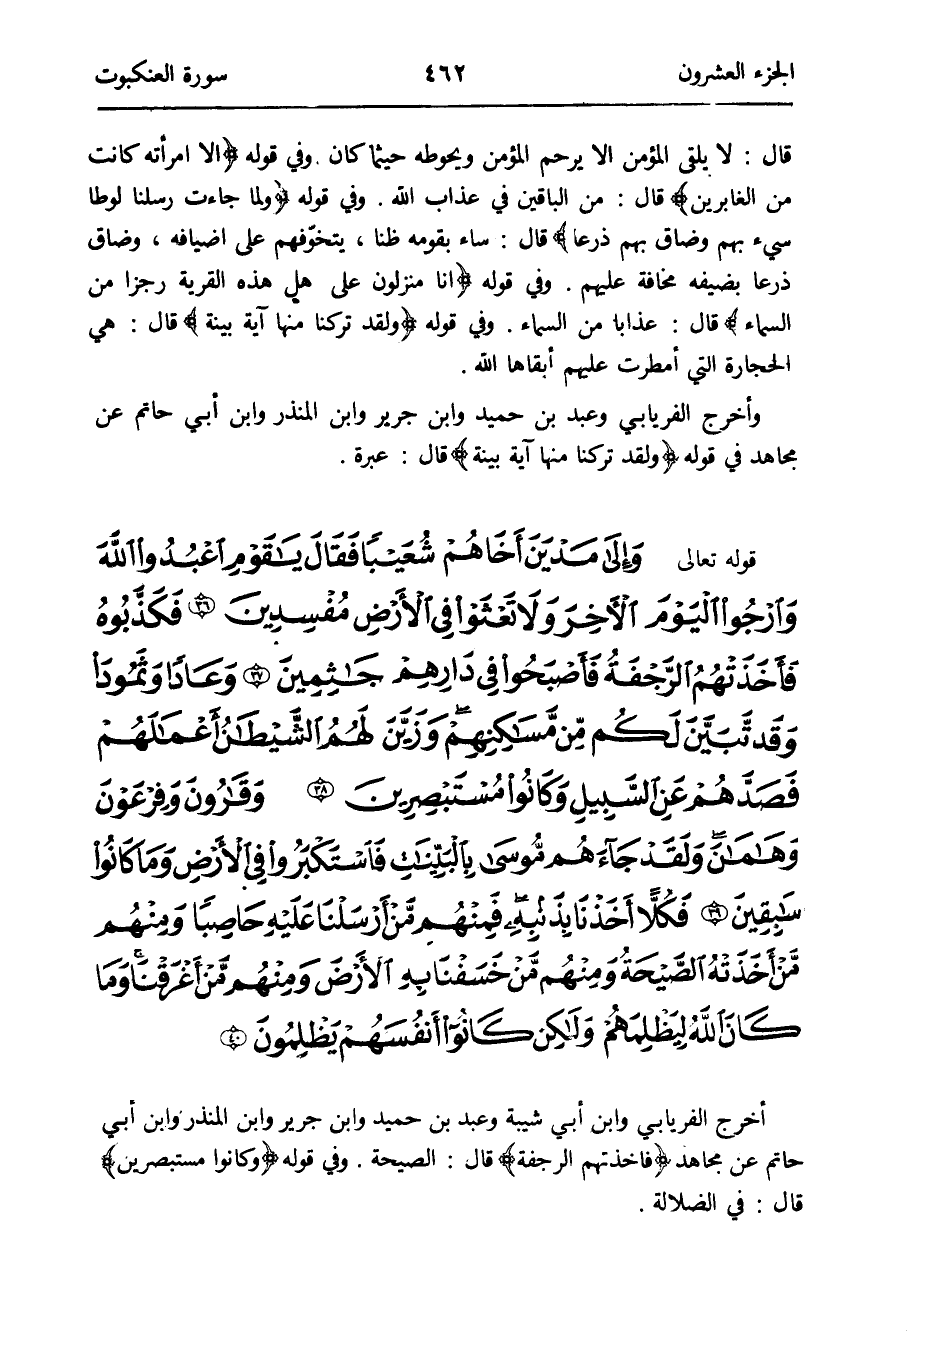 الجزء العشرون ٤٦٢ سورة العنكبوت
قال : لا يلقى المؤمن الا يرحم المؤمن ويحوطه حيثما كان . وفي قوله ﴿الا امرأته كانت
من الغابرين﴾ قال : من الباقين في عذاب الله . وفي قوله ﴿ولما جاءت رسلنا لوطا
سيء بهم وضاق بهم ذرعا﴾ قال : ساء بقومه ظنا ، يتخوّفهم على اضيافه ، وضاق
ذرعا بضيفه مخافة عليهم . وفي قوله ﴿انا منزلون على هل هذه القرية رجزا من
السماء﴾ قال : عذابا من السماء . وفي قوله ﴿ولقد تركنا منها آية بينة﴾ قال : هي
الحجارة التي أمطرت عليهم أبقاها الله .
وأخرج الفريابي وعبد بن حميد وابن جرير وابن المنذر وابن أبي حاتم عن
مجاهد في قوله ﴿ولقد تركنا منها آية بينة﴾ قال : عبرة .
قوله تعالى وَإِلَىٰ مَدْيَنَ أَخَاهُمْ شُعَيْبًا فَقَالَ يَـٰقَوْمِ ٱعْبُدُوا۟ ٱللَّهَ
وَٱرْجُوا۟ ٱلْيَوْمَ ٱلْأَخِرَ وَلَا تَعْثَوْا۟ فِى ٱلْأَرْضِ مُفْسِدِينَ ٣٦ فَكَذَّبُوهُ
فَأَخَذَتْهُمُ ٱلرَّجْفَةُ فَأَصْبَحُوا۟ فِى دَارِهِمْ جَـٰثِمِينَ ٣٧ وَعَادًا وَثَمُودَا۟
وَقَد تَّبَيَّنَ لَكُم مِّن مَّسَـٰكِنِهِمْ ۖ وَزَيَّنَ لَهُمُ ٱلشَّيْطَـٰنُ أَعْمَـٰلَهُمْ
فَصَدَّهُمْ عَنِ ٱلسَّبِيلِ وَكَانُوا۟ مُسْتَبْصِرِينَ ٣٨ وَقَـٰرُونَ وَفِرْعَوْنَ
وَهَـٰمَـٰنَ ۖ وَلَقَدْ جَآءَهُم مُّوسَىٰ بِٱلْبَيِّنَـٰتِ فَٱسْتَكْبَرُوا۟ فِى ٱلْأَرْضِ وَمَا كَانُوا۟
سَـٰبِقِينَ ٣٩ فَكُلًّا أَخَذْنَا بِذَنۢبِهِۦ ۖ فَمِنْهُم مَّنْ أَرْسَلْنَا عَلَيْهِ حَاصِبًا وَمِنْهُم
مَّنْ أَخَذَتْهُ ٱلصَّيْحَةُ وَمِنْهُم مَّنْ خَسَفْنَا بِهِ ٱلْأَرْضَ وَمِنْهُم مَّنْ أَغْرَقْنَا ۚ وَمَا
كَانَ ٱللَّهُ لِيَظْلِمَهُمْ وَلَـٰكِن كَانُوٓا۟ أَنفُسَهُمْ يَظْلِمُونَ ٤٠
أخرج الفريابي وابن أبي شيبة وعبد بن حميد وابن جرير وابن المنذر وابن أبي
حاتم عن مجاهد ﴿فاخذتهم الرجفة﴾ قال : الصيحة . وفي قوله ﴿وكانوا مستبصرين﴾
قال : في الضلالة .